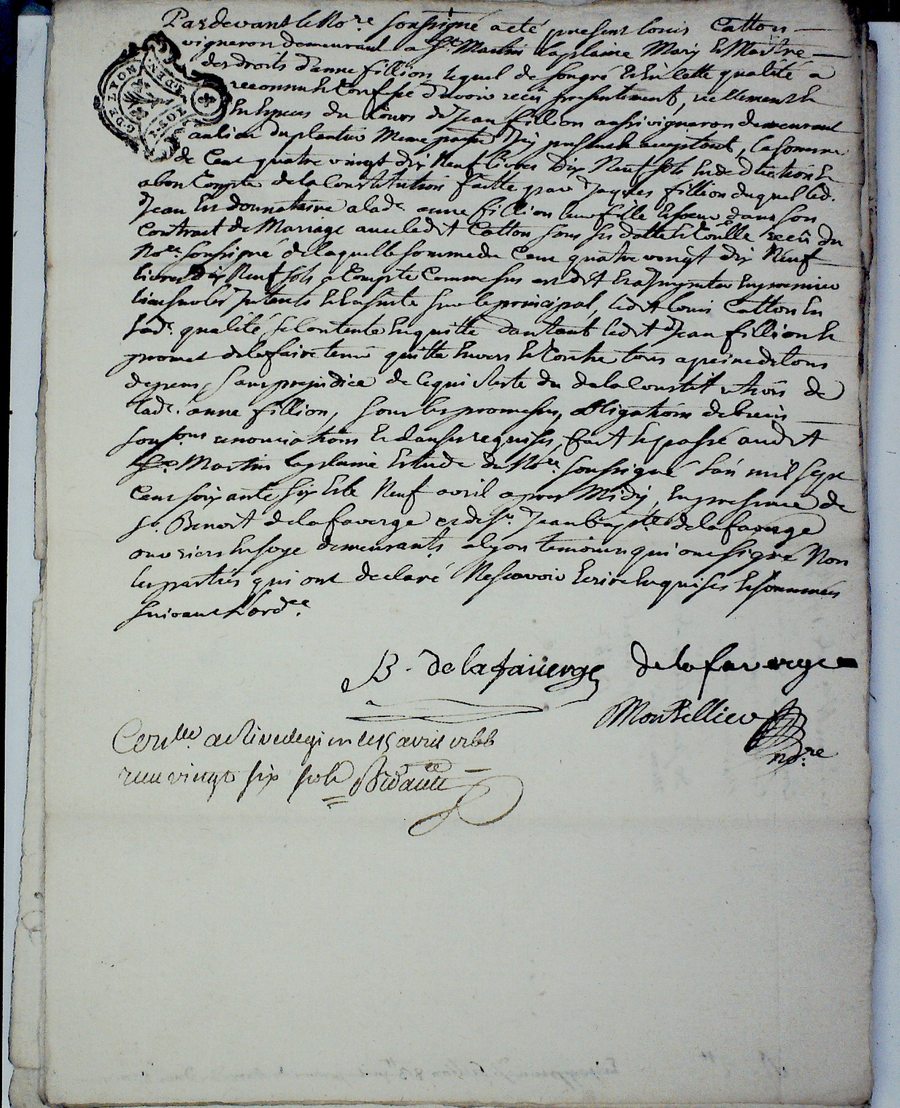 Pardevant le No.re soussigné a eté present Louis Catton
vigneron demeurant a St Martin laplaine Mary et Maistre
des droits d'anne fillion lequel de son gré et en laditte qualité a
reconnut et confessé d'avoir reçu presentement, reellement et
En Especes du sieur de Jean fillion aussi vigneron demeurant
au lieu du plantier Meme paroisse Icy present et acceptant, la somme
de Cent quatre vingt dix Neuf livres Dix Neuf sols En deduction Et
a bon Compte de la Constitution faitte par Jaques fillion duquel led.
Jean Est donnataire a lad.e anne fillion leur fille et soeur dans son
Contrat de Mariage avec ledit Catton sous ses dattes et Contrôlle reçu du
No.re soussigné de laquelle somme de Cent quatre vingt dix Neuf
livres dix Neuf sols a Compte Comme sus est dit Et a Imputer En premier
lieu sur les Interets et Ensuite sur le principal, ledit Louis Catton En
lad. qualité, se Contente En quitte d'autant ledit Jean fillion Et
promet de le faire tenir quitte Envers Et Contre tous a peine de tous
depens, sans prejudice de ce qui Reste du de la Constitution de
lad. anne fillion, sous les promesses, obligations de biens
soumissions renonciations Et clauses requises, fait Et passé audit
St Martin laplaine Etude du No.re soussigné L'an mil sept
Cent soixante Six Et le Neuf avril apres Midy, En presence de
Sr. Benoit de la faverge et de Sr. Jean Bapt.te de la faverge
ouvriers En soye demeurants a Lyon temoins qui ont signé Non
les parties qui ont declaré Ne scavoir Ecrire Enquises Et sommées
suivant l'ord.ce
B. de la faverge de la faverge
Montellier
no.re
Con.lle a Rivedegier le 15 avril 1766
reçu vingt six sols
G. DE LYON